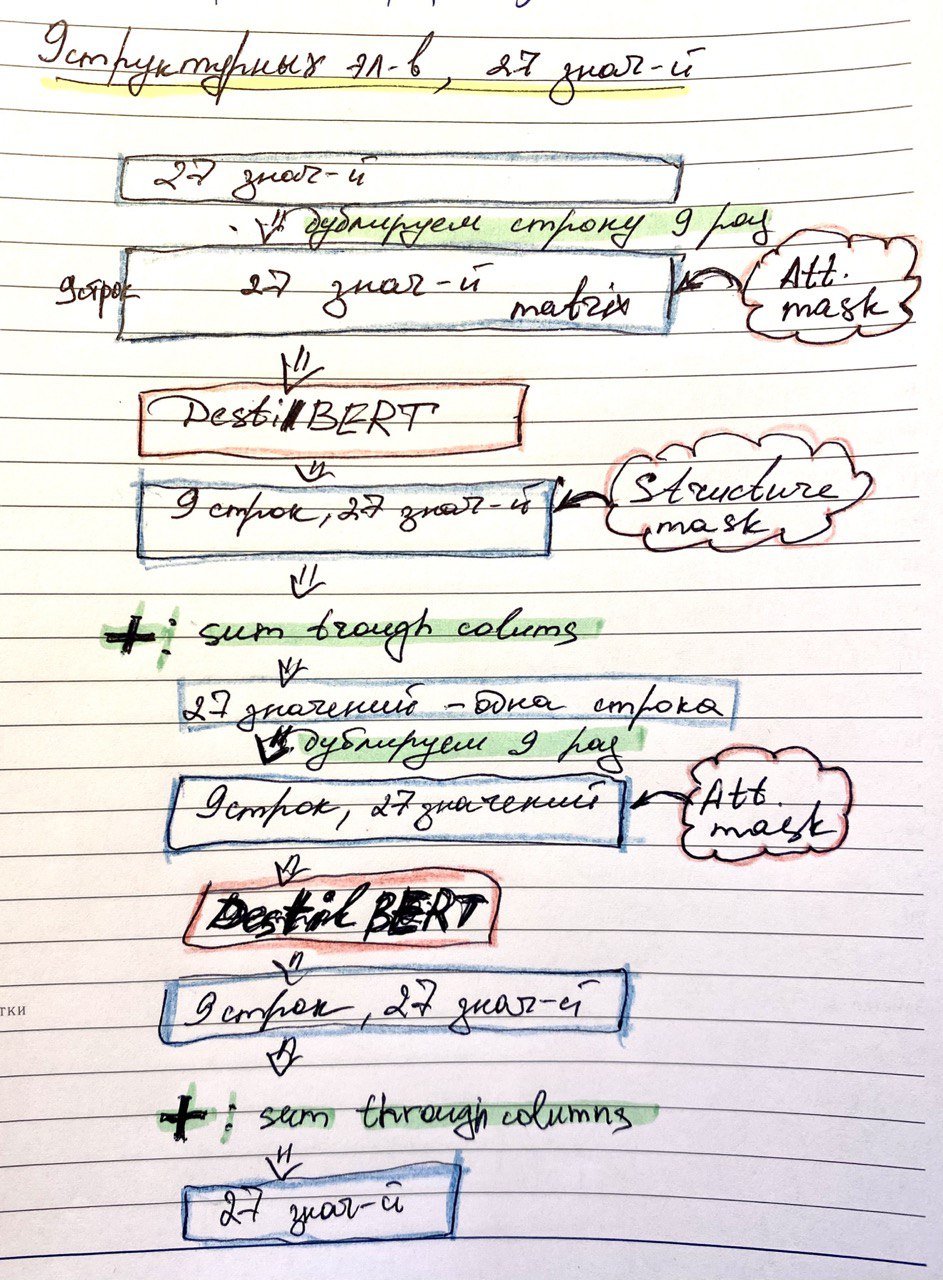 9 структурных эл-в, 27 знач-й
27 знач-й
дублируем строку 9 раз
9 строк
27 знач-й
matrix
Att.
mask
DestilBERT
9 строк, 27 знач-й
Structure
mask
+: sum trough colums
27 значений - одна строка
дублируем 9 раз
9 строк, 27 значений
Att.
mask
Destil BERT
9 строк, 27 знач-й
тки
+: sum through columns
27 знач-й